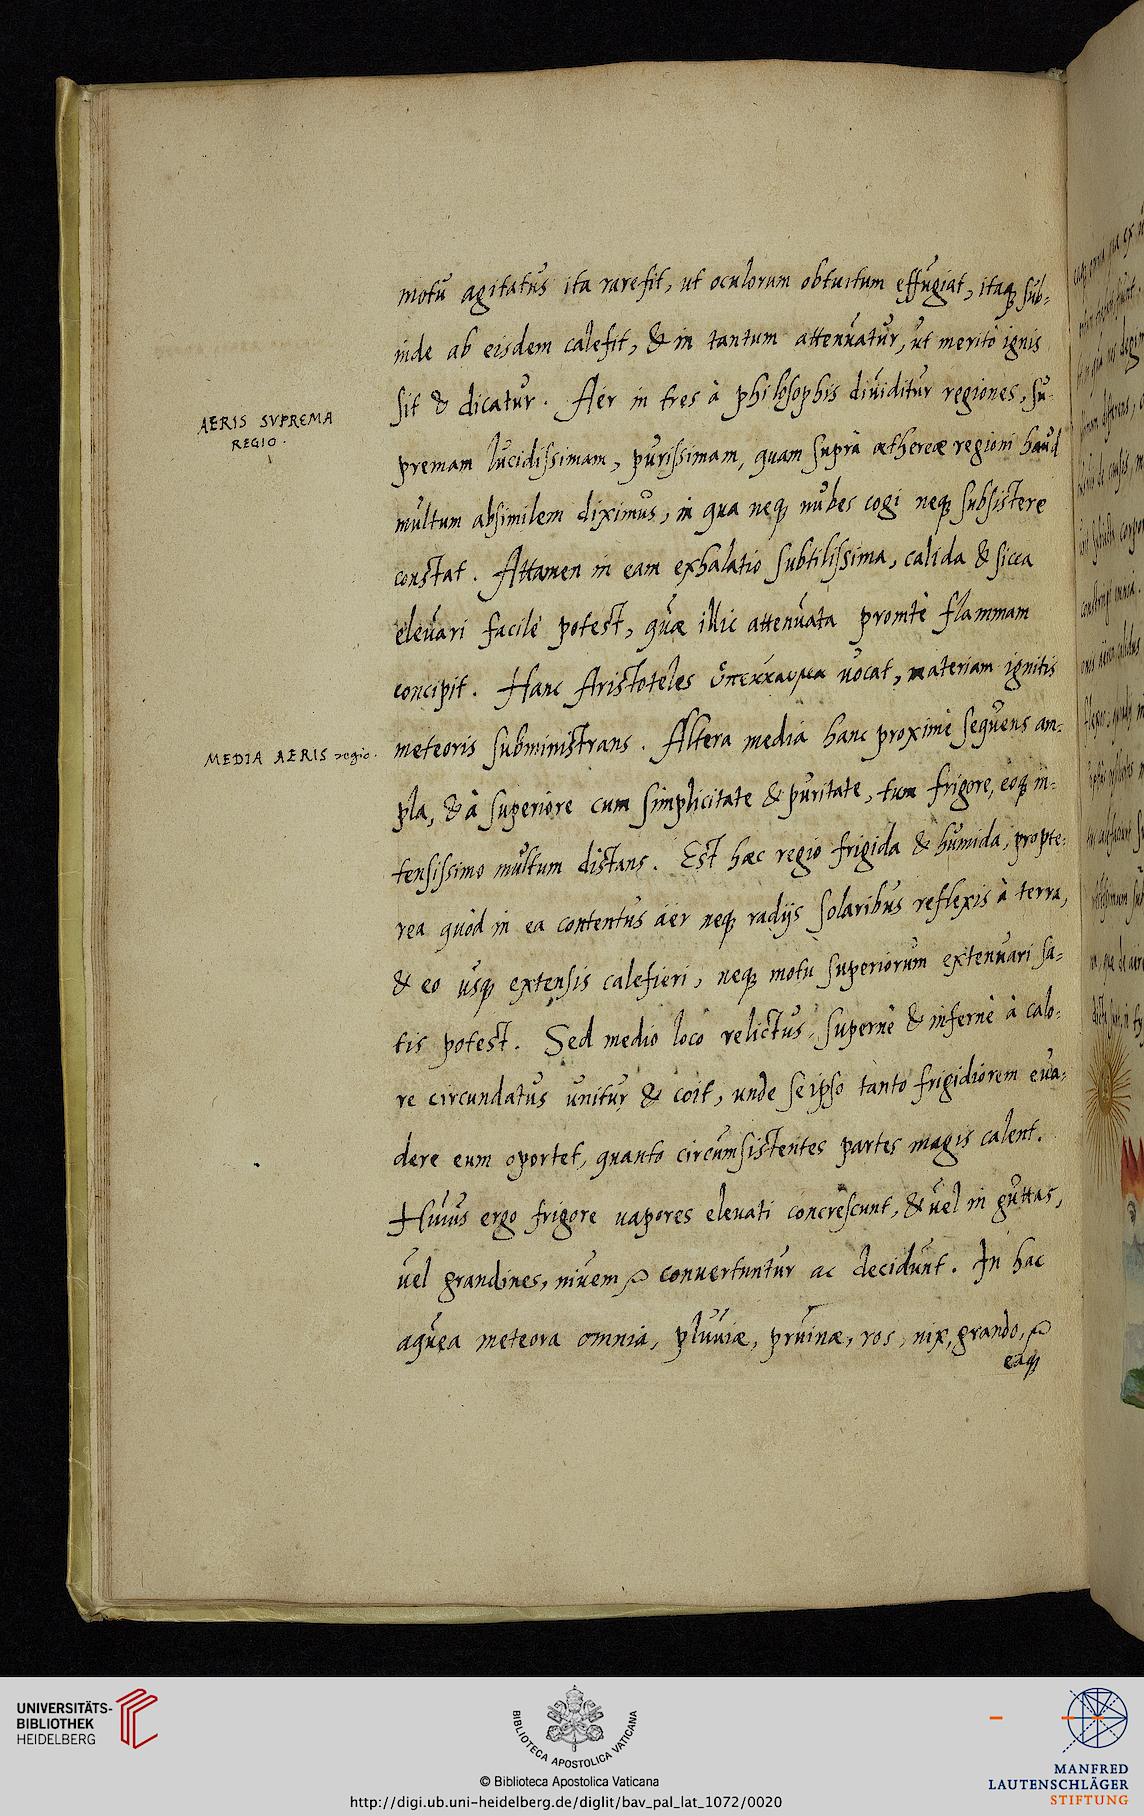 motu agitatus ita rarefit, ut oculorum obtuitum effugiat, itaq; sub-
inde ab eisdem calefit, & in tantum attenuatur, ut meritò ignis
sit & dicatur. Aër in tres à philosophis diuiditur regiones, su-
AERIS SVPREMA
REGIO.
premam lucidissimam, purissimam, quam suprà æthereæ regioni haud
multum absimilem diximus, in qua neq; nubes cogi neq; subsistere
constat. Attamen in eam exhalatio subtilissima, calida & sicca
eleuari facilè potest, quæ illic attenuata promtè flammam
concipit. Hanc Aristoteles ὑπέκκαυμα uocat, materiam ignitis
MEDIA AERIS regio.
meteoris subministrans. Altera media hanc proximè sequens am-
pla, & à superiore cum simplicitate & puritate, tum frigore, eoq; in-
tensissimo multum distans. Est hæc regio frigida & humida, propte-
rea quòd in ea contentus äer neq; radijs solaribus reflexis à terra,
& eo usq; extensis calefieri, neq; motu superiorum extenuari sa-
tis potest. Sed medio loco relictus, supernè & infernè à calo-
re circundatus unitur & coit, unde seipso tanto frigidiorem eua-
dere eum oportet, quanto circumsistentes partes magis calent.
Huius ergo frigore uapores eleuati concrescunt, & uel in guttas,
uel grandines, niuem convertuntur ac decidunt. In hac
aquea meteora omnia, pluuiæ, pruinæ, ros, nix, grando,
eaq;
UNIVERSITÄTS-
BIBLIOTHEK
HEIDELBERG
BIBLIOTECA APOSTOLICA VATICANA
© Biblioteca Apostolica Vaticana
http://digi.ub.uni-heidelberg.de/diglit/bav_pal_lat_1072/0020
MANFRED
LAUTENSCHLÄGER
STIFTUNG